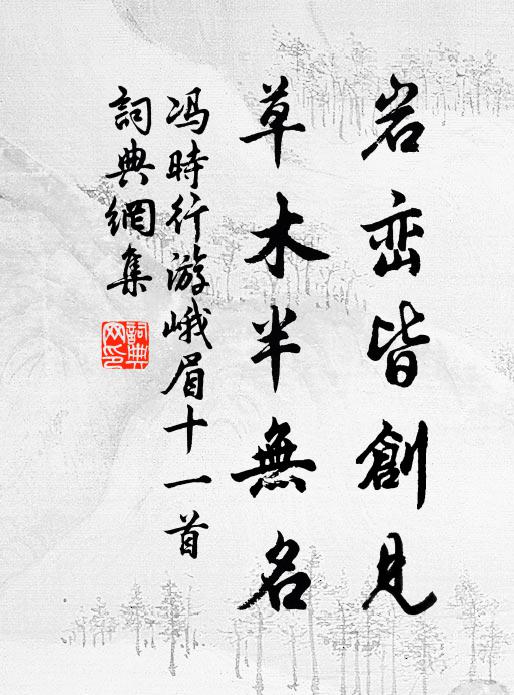 岩峦皆創見
草木半無名
冯時行游峨眉十一首
詞典網集
詞典网印